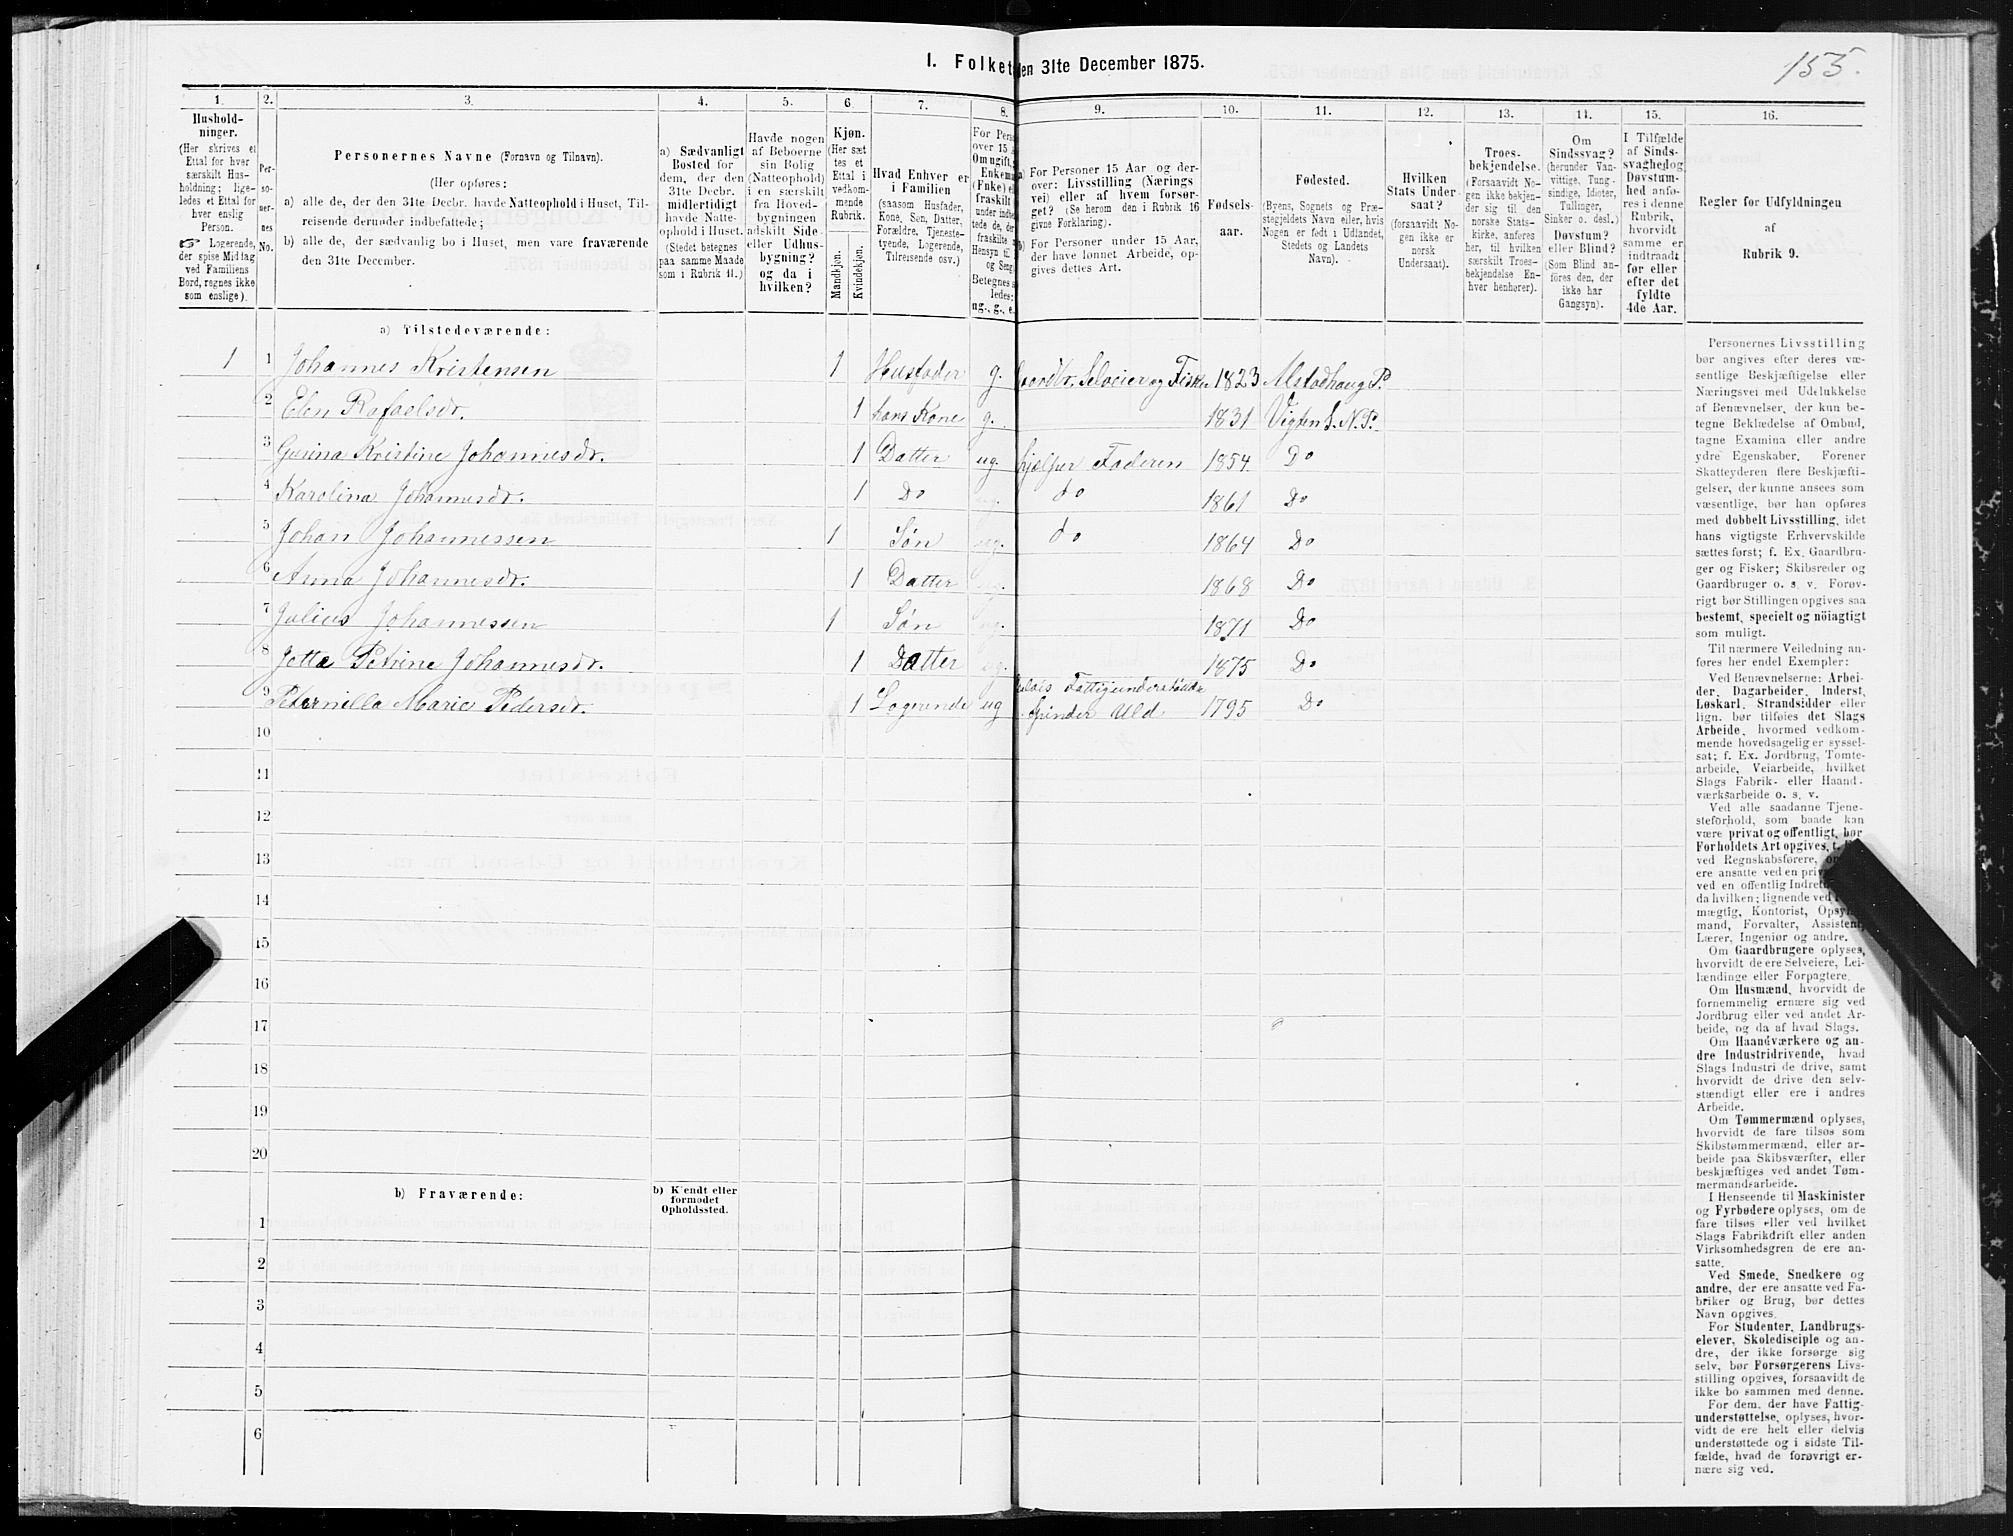 155.
I. Folket
den 31te December 1875.
1. 2. 3. 4. 5. 6. 7. 8. 9. 10. 11. 12. 13. 14. 15. 16.
Hushold-
ninger.
(Her skrives et
Ettal for hver
særskilt Hus-
holdning; lige-
ledes et Ettal for
hver enslig
Person.
☞ Logerende,
der spise Middag
ved Familiens
Bord, regnes ikke
som enslige).
Per-
so-
ner-
nes
No.
Personernes Navne (Fornavn og Tilnavn).
(Her opføres:
a) alle de, der den 31te Decbr. havde Natteophold i Huset, Til-
reisende derunder indbefattede;
b) alle de, der sædvanlig bo i Huset, men vare fraværende
den 31te December.
a) Sædvanligt
Bosted for
dem, der den
31te Decbr.
midlertidigt
havde Natte-
ophold i Huset.
(Stedet betegnes
paa samme Maade
som i Rubrik 11.)
Havde nogen
af Beboerne
sin Bolig
(Natteophold)
i en særskilt
fra Hoved-
bygningen
adskilt Side-
eller Udhus-
bygning?
og da i
hvilken?
Kjøn.
(Her sæt
tes et
Ettal i
vedkom-
mende
Rubrik.
Mandkjøn.
Kvindekjøn.
Hvad Enhver er
i Familien
(saasom Husfader,
Kone, Søn, Datter,
Forældre, Tjeneste-
tyende, Logerende,
Tilreisende osv.)
For Pers
over 15 a
Om ugift,
Enkema
(Fnke) el
fraskilt
under indbe-
tede de, der
fraskilte
Hensyn til
og Seng.
Betegnes s
ledes:
ug., g., e.
a) For Personer 15 Aar og der-
over: Livsstilling (Nærings
vei) eller af hvem forsør-
get? (Se herom den i Rubrik 16
givne Forklaring).
b) For Personer under 15 Aar,
der have lønnet Arbeide, op-
gives dettes Art.
Fødsels-
aar.
Fødested.
(Byens, Sognets og Præ-
stegjeldets Navn eller, hvis
Nogen er født i Udlandet,
Stedets og Landets
Navn).
Hvilken
Stats Under-
saat?
(forsaavidt No-
gen ikke er
norsk
Undersaat).
Troes-
bekjendelse.
(Forsaavidt No-
gen ikke bekjen-
der sig til den
norske Stats-
kirke, anføres
her, til hvilken
særskilt Troes-
bekjendelse En-
hver henhører).
Om
Sindssvag?
(herunder Van-
vittige, Tung-
sindige, Idioter,
Tullinger,
Sinker o. desl.)
Døvstum?
eller Blind?
(Som Blind an-
føres den, der
ikke har
Gangsyn).
I Tilfælde
af Sinds-
svaghed og
Døvstum-
hed anfø-
res i denne
Rubrik,
hvorvidt
samme er
indtraadt
før eller
efter det
fyldte
4de Aar.
Regler for Udfyldningen
af
Rubrik 9.
a) Tilstedeværende:
1 1 Johannes Kristensen 1 Husfader g. Gaardbr. Seleier og Fisker 1823 Alstadhaug P.
2 Elen Rafaelsdr. 1 hans Kone g. 1831 Vigten S. N. P.
3 Gurina Kristine Johannesdr. 1 Datter ug. hjelper Faderen 1854. Do
4 Karolina Johannesdr. 1 Do ug. do 1861 Do
5 Johan Johannessen 1 Søn ug. do 1864 Do
6 Anna Johannesdr. 1 Datter ug. 1868 Do
7 Julius Johannessen 1 Søn ug. 1871 Do
8 Jette Petrine Johannesdr. 1 Datter ug. 1875 Do
9 Peternilla Marie Pedersdr. 1 Logerende ug Fattigunderstøttelse Spinder Uld 1795 Do
10
11
12
13
14
15
16
17
18
19
20
b) Fraværende:
b) Kjendt eller
formodet
Opholdssted.
1
2
3
4
5
6
Personernes Livsstilling
bør angives efter deres væ-
sentlige Beskjæftigelse eller
Næringsvei med Udelukkelse
af Benævnelser, der kun be-
tegne Beklædelse af Ombud,
tagne Examina eller andre
ydre Egenskaber. Forener
Skatteyderen flere Beskjæfti-
gelser, der kunne ansees som
væsentlige, bør han opføres
med dobbelt Livsstilling, idet
hans vigtigste Erhvervskilde
sættes først; f. Ex. Gaardbru-
ger og Fisker; Skibsreder og
Gaardbruger o. s. v. Forøv-
rigt bør Stillingen opgives saa
bestemt, specielt og nöiagtigt
som muligt.
Til nærmere Veiledning an-
føres her endel Exempler:
Ved Benævnelserne: Arbei-
der, Dagarbeider, Inderst,
Løskarl, Strandsidder eller
lign. bør tilføies det Slags
Arbeide, hvormed vedkom-
mende hovedsagelig er syssel-
sat; f. Ex. Jordbrug, Tomte-
arbeide, Veiarbeide, hvilket
Slags Fabrik- eller Haand-
værksarbeide o. s. v.
Ved alle saadanne Tjene-
steforhold, som baade kan
være privat og offentligt, bør
Forholdets Art opgives, t.
ved Regnskabsførere, om
ere ansatte ved en priv
ved en offentlig Indret
da hvilken; lignende ved
mægtig, Kontorist, Opsyns
mand, Forvalter, Assistent,
Lærer, Ingeniør og andre.
Om Gaardbrugere oplyses,
hvorvidt de ere Selveiere, Lei-
lændinge eller Forpagtere.
Om Husmænd, hvorvidt de
fornemmelig ernære sig ved
Jordbrug eller ved andet Ar-
beide, og da af hvad Slags.
Om Haandværkere og an-
dre Industridrivende, hvad
Slags Industri de drive, samt
hvorvidt de drive den selv-
stændigt eller ere i andres
Arbeide.
Om Tømmermænd oplyses,
hvorvidt de fare tilsøs som
Skibstømmermænd, eller ar-
beide paa Skibsværfter, eller
beskjæftiges ved andet Tøm-
mermandsarbeide.
I Henseende til Maskinister
og Fyrbødere oplyses, om de
fare tilsøs eller ved hvilket
Slags Fabrikdrift eller anden
Virksomhedsgren de ere an-
satte.
Ved Smede, Snedkere og
andre, der ere ansatte ved Fa-
briker og Brug, bør dettes
Navn opgives.
For Studenter, Landbrugs-
elever, Skoledisciple og an-
dre, der ikke forsørge sig
selv, bør Forsørgerens Livs-
stilling opgives, forsaavidt de
ikke bo sammen med denne.
For dem, der have Fattig-
understøttelse, oplyses, hvor-
vidt de ere helt eller delvis
understøttede og i sidste Til-
fælde, hvad de forøvrigt er-
nære sig ved.